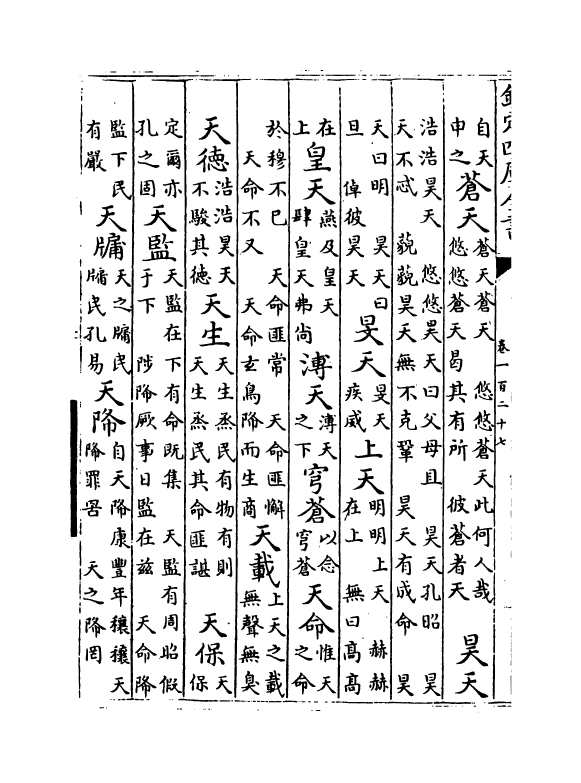 欽定四庫全書
卷一百二十七
自天申之 蒼天 蒼天蒼天 悠悠蒼天此何人哉 悠悠蒼天曷其有所 彼蒼者天 昊天
浩浩昊天 悠悠昊天曰父母且 昊天孔昭 昊天不忒 藐藐昊天無不克鞏 昊天有成命 昊
天曰明 昊天曰旦 倬彼昊天 旻天 旻天疾威 上天 明明上天 赫赫在上 無曰高高
在上 皇天 燕及皇天肆皇天弗尚 溥天 溥天之下 穹蒼 以念穹蒼 天命 惟天之命
於穆不已 天命匪常 天命匪懈 天命不又 天命玄鳥降而生商 天載 上天之載無聲無臭
天德 浩浩昊天不駿其德 天生 天生烝民有物有則天生烝民其命匪諶 天保 天保
定爾亦孔之固 天監 天監在下有命既集 天監有周昭假于下 陟降厥事日監在兹 天命降
監下民有嚴 天牖 天之牖民牖民孔易 天降 自天降康豐年穰穰 天降罪罟 天之降罔